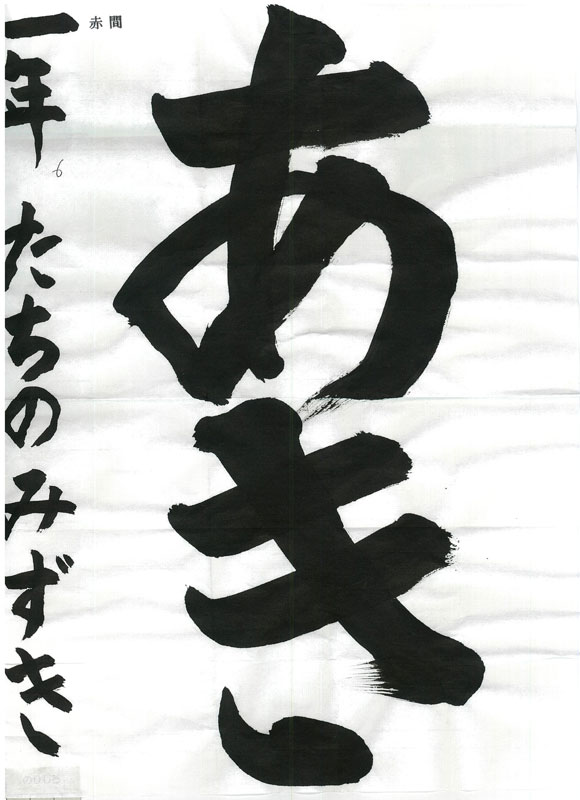 赤間
あき
一年 たちのみずき
6